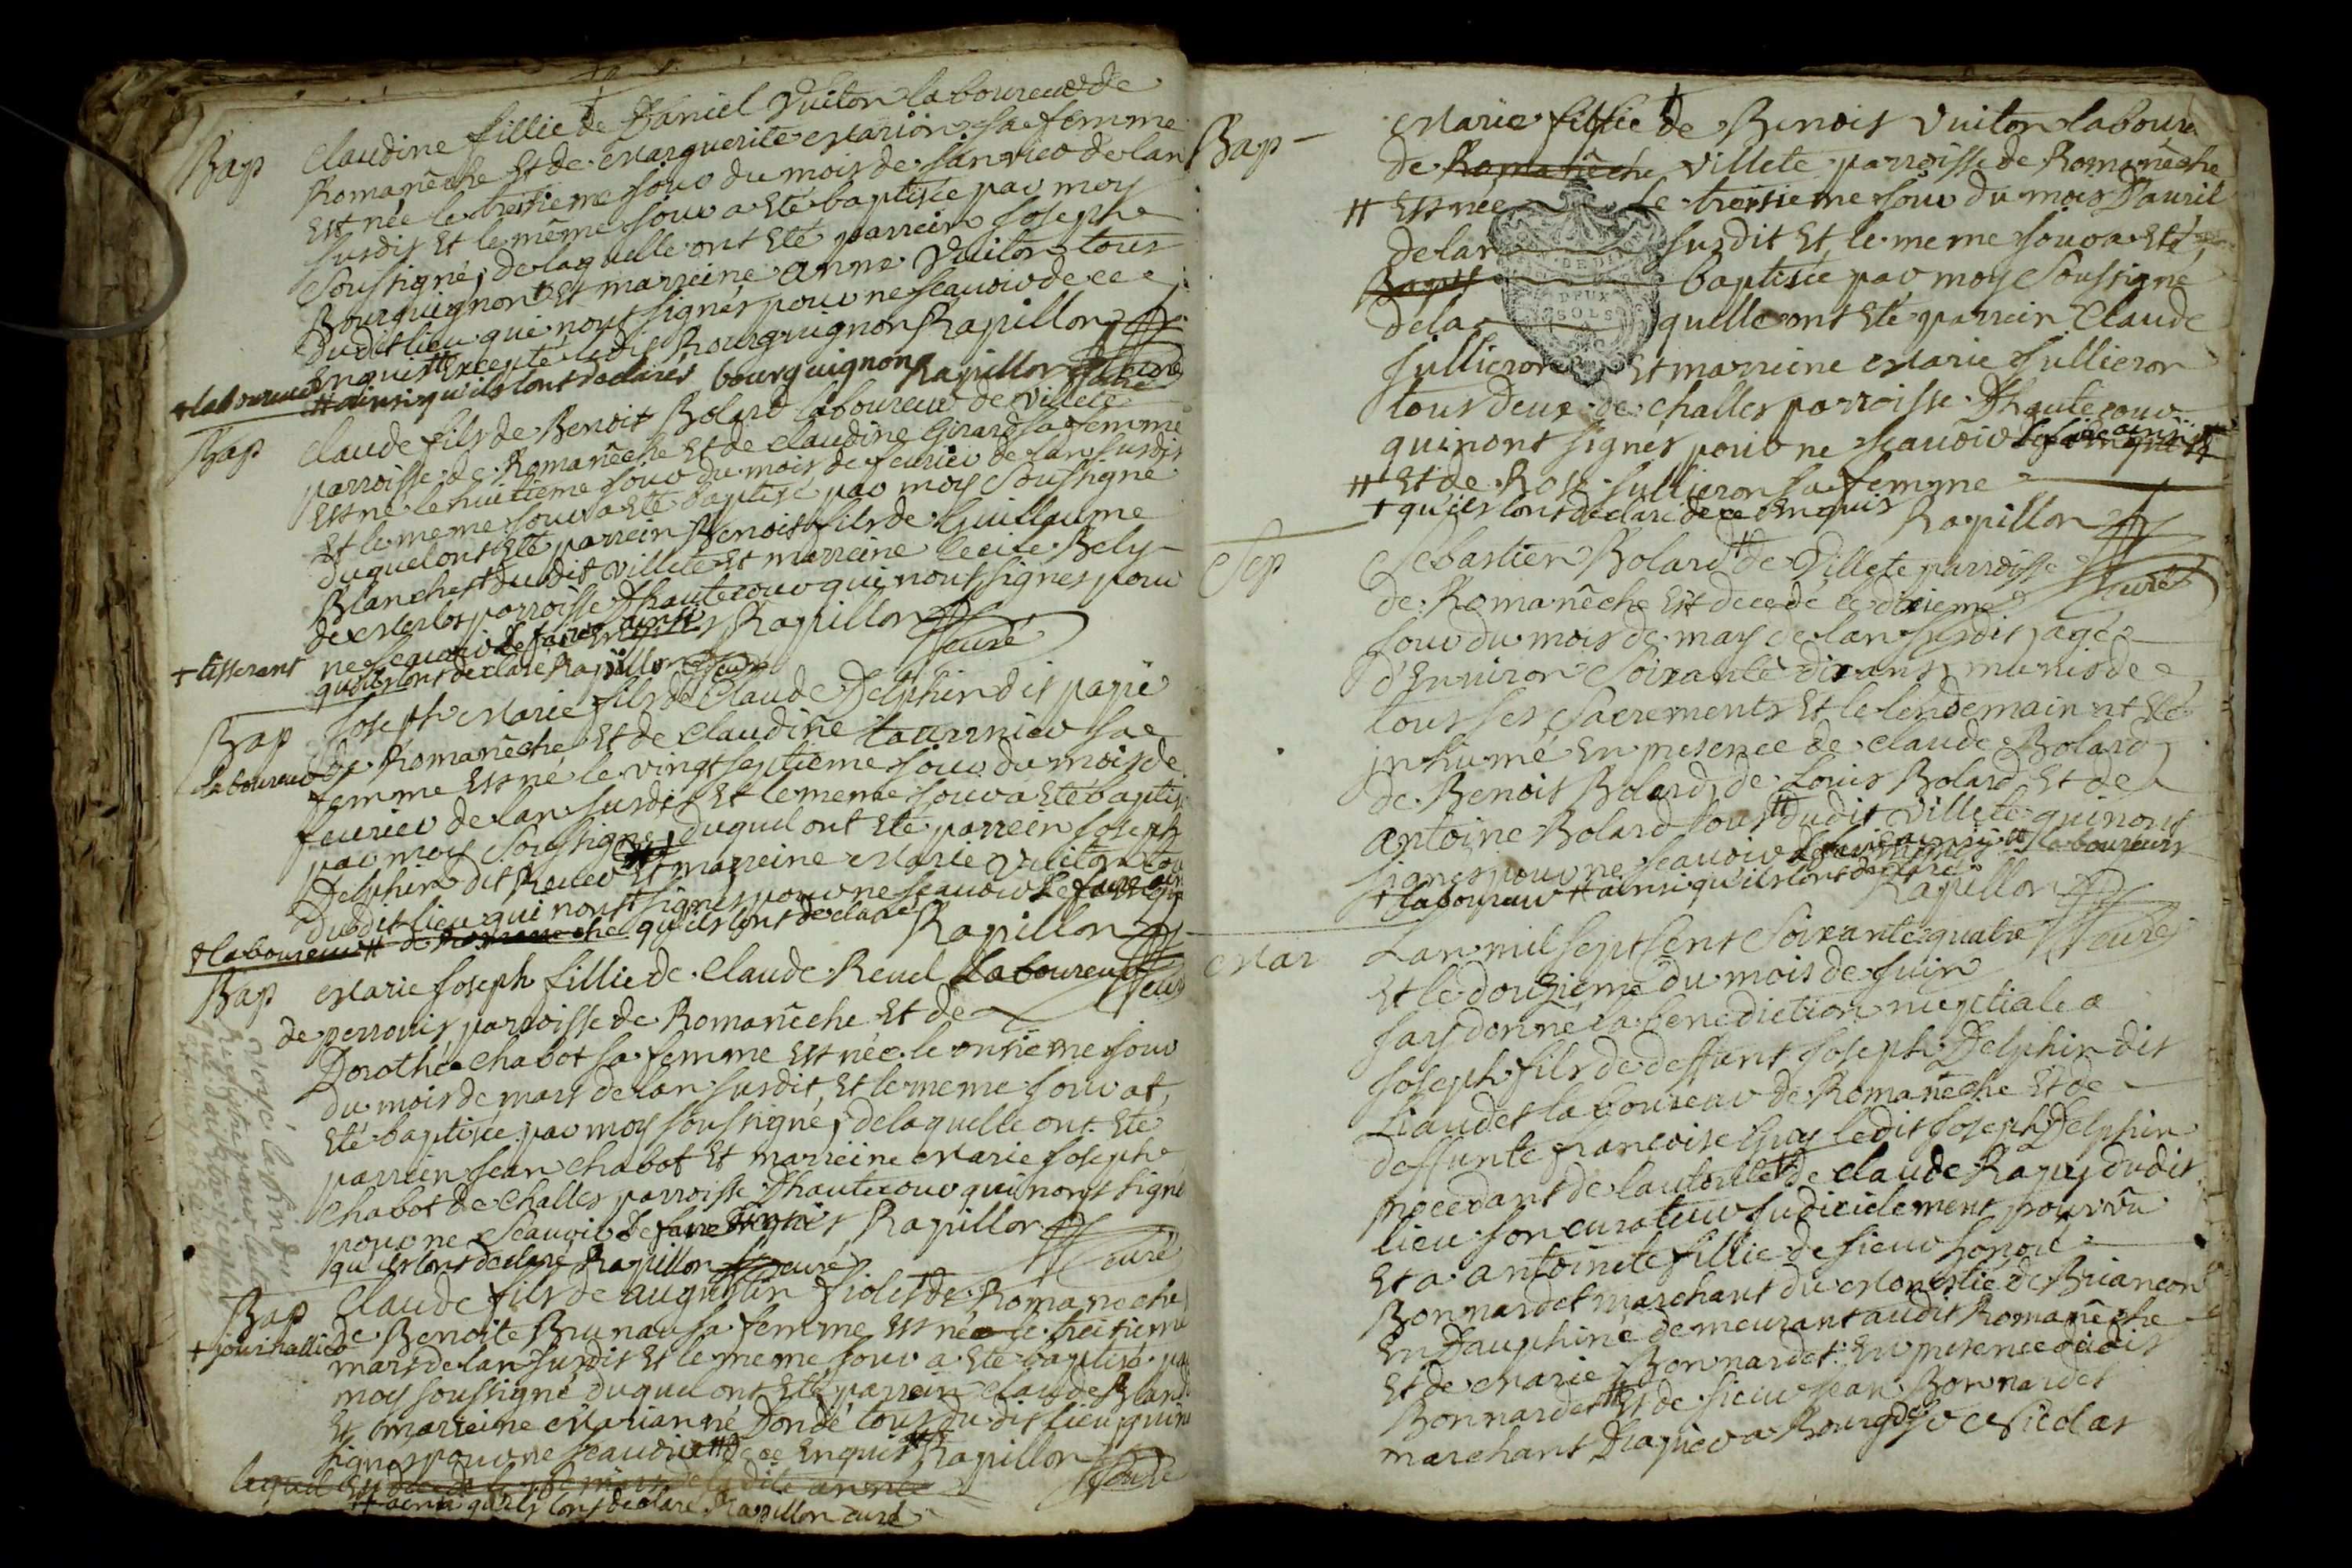 Bap Claudine fillie de Daniel Vuiton laboureur de
Romanêche Et de Marguerite Marion sa femme
Est née le treisieme jour du mois de janvier de lan
susdit Et le même jour a Eté baptisée par moy
soussigné, delaquelle ont Eté parrein Joseph
Bourguignon + Et marreine anne Vuiton tous
dudit lieu qui nont signés pour ne scauoir de ce
Enquis # Excepté ledit Bourguignon Rapillon
+ laboureur # ainsi qu'ils lont declarés bourguignon Rapillon curé
Bap Claude fils de Benoit Bolard laboureur de Villete
parroisse de Romanêche Et de Claudine Girard sa femme
Est né le huitieme jour du mois de feurier de lan susdit
Et le meme jour a Eté baptisé par moy soussigné
duquel ont Eté parrein Benoist fils de Guillaume
Blanchet + dudit Villete Et marreine Cecile Bely
de Merlos parroisse Dhautecour qui nont signes pour
ne scauoir Le faire ainsi Rapillon
+ tisserant qu'ils lont declare Rapillon curé
curé
Bap Joseph Marie fils de Claude Delphin dit papie
laboureur de Romanêche Et de Claudine tournier sa
femme Est né le vingt septieme jour du mois de
feurier de lan susdit Et le meme jour a Eté baptisé
par moy soussigné, duquel ont Eté parrein Joseph
Delphin dit Et marreine Marie Vuiton tous
dudit lieu qui nont signes pour ne scauoir Le faire
+ laboureur # de Romaneche qu'ils lont declaré Rapillon
curé
Bap Marie Joseph fillie de Claude Reuel Laboureur
de perrouis, parroisse de Romanêche Et de
Dorothée Chabot sa femme Est née le onsieme jour
du mois de mars de lan susdit, Et le meme jour at
Eté baptisée par moy soussigné, delaquelle ont Eté
parrein Jean Chabot Et marreine Marie Joseph
Chabot de Challes parroisse Dhautecour qui nont signé
pour ne scauoir Le faire ainsi Rapillon
qu'ils lont declaré Rapillon curé
curé
voyé la fin du
Registre pour le
Bap Claude fils de augustin fiolet de Romaneche
+ journallier de Benoite Brunau sa femme Est né le treisieme
mars de lan susdit Et le meme jour a Eté baptisé par
moy soussigné duquel ont Eté parrein Claude Bland
Et marreine Marianne Dondé tous du dit lieu qui
signes pour ne scauoir # de ce Enquis Rapillon
curé
lequel Est decede le de mars de ladite année
# ainsi qu'ils lont declare Rapillon curé
Bap Marie fillie de Benoit Vuiton laboure
de Romanêche Villete parroisse de Romanêche
# Est née le troisieme jour du mois Dauril
de lan susdit Et, le meme jour a Eté,
baptisée par moy soussigné
DEUX
SOLS
dela quelle ont Eté parrein Claude
Jullieron Et marreine Marie Jullieron
tous deux de Challes parroisse Dhautecour
qui nont signes pour ne scauoir Le faire ainsi
# Et de Rose Jullieron sa femme
+ qu'ils lont declaré de ce Enquis Rapillon
curé
Sep Sebastien Bolard + de Villete parroisse
de Romanêche Est decedé le dixieme
jour du mois de may de lan susdit, agé
d'Enuiron Soixante dix ans, munis de
tous ses Sacrements Et le lendemain at Eté
inhumé En presence de Claude Bolard
de Benoit Bolard, de Louis Bolard, Et de
antoine Bolard tous # dudit Villete qui nont
signes pour ne scauoir Le faire ainsi # laboureurs
+ laboureur # ainsi qu'ils lont declaré
Rapillon
curé
Mar Lan mil sept sent Soixante quatre
Et le dousieme du mois de juin
jay donné la benediction nuptiale a
Joseph fils de deffunt Joseph Delphin dit
Liaudet laboureur de Romanêche Et de
deffunte francoise Guy ledit Joseph Delphin
procedant de lautorité de Claude Rapuy dudit
lieu son curateur judiciellement pourvû
Et a antoinete fillie de sieur honoré
Bonnardet marchant du Monestié de Briancon
En Dauphiné demeurant audit Romanêche
Et de Marie Bonnardet: En presence dudit
Bonnardet # Et de sieur Jean Bonnardet
marchant Drapier a Bourg de sr Nicolas